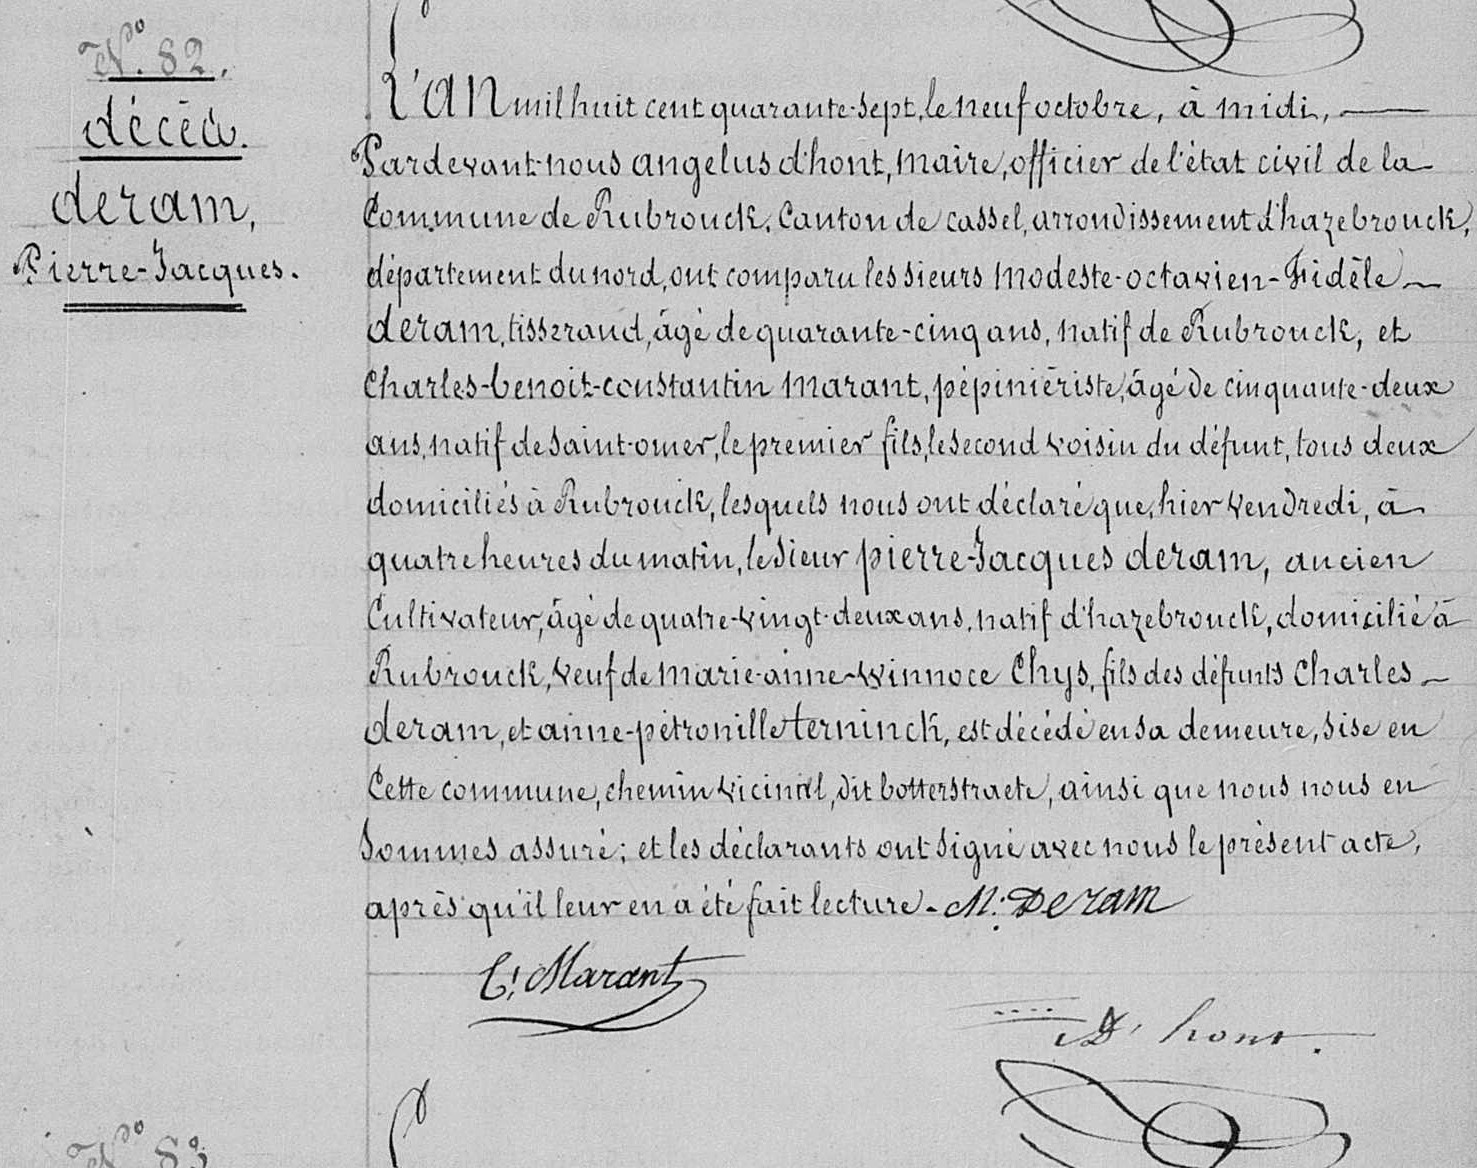 N.° 82.
décès.
deram,
Pierre-Jacques.
L'an mil huit cent quarante-sept, le neuf octobre, à midi,
Pardevant nous angelus d'hont, maire, officier de l'état civil de la
Commune de Rubrouck, Canton de cassel, arrondissement d'hazebrouck,
département du nord, ont comparu les sieurs modeste-octavien-Fidèle
deram, tisserand, âgé de quarante-cinq ans, natif de Rubrouck, et
Charles-benoit-constantin marant, pépiniériste, âgé de cinquante-deux
ans, natif de saint-omer, le premier fils, le second voisin du défunt, tous deux
domiciliés à Rubrouck, lesquels nous ont déclaré que, hier vendredi, à
quatre heures du matin, le sieur pierre-Jacques deram, ancien
Cultivateur, âgé de quatre-vingt-deux ans, natif d'hazebrouck, domicilié à
Rubrouck, veuf de marie-anne-winnoce Chys, fils des défunts Charles
deram, et anne-pétronille terninck, est décédé en sa demeure, sise en
Cette commune, chemin vicinal, dit botterstraete, ainsi que nous nous en
Sommes assuré; et les déclarants ont signé avec nous le présent acte,
après qu'il leur en a été fait lecture. M. Deram
C. Marant
D'hont.
N.° 83